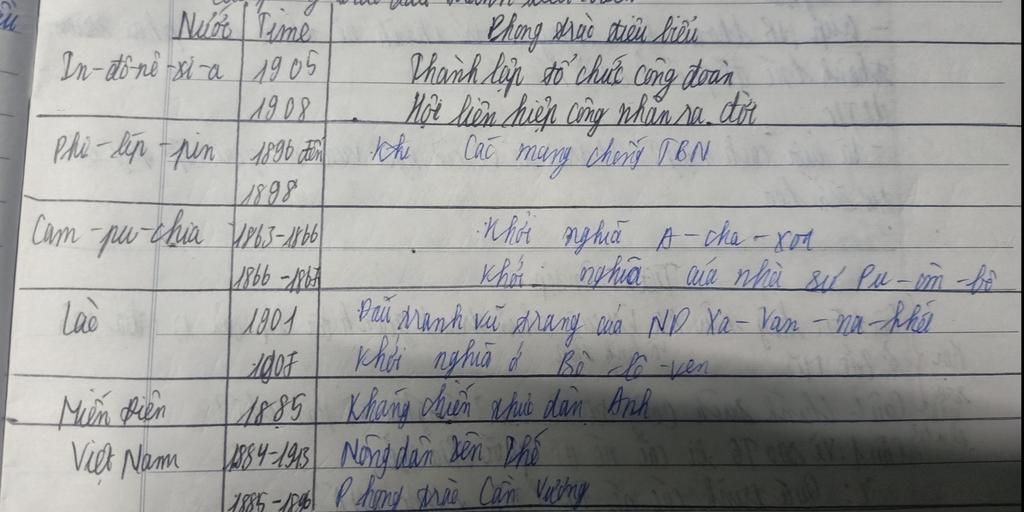 Nước Time Phong trào tiêu biểu
In-đô-nê-xi-a 1905 Thành lập tổ chức công đoàn
1908 Hội liên hiệp công nhân ra đời
Phi-lip-pin 1896 đến Các mạng chống TBN
1898
Cam-pu-chia 1863-1866 Khởi nghĩa A-cha-xoa
1866-1867 Khởi nghĩa của nhà sư Pu-côm-bô
Lào 1901 Đấu tranh vũ trang của ND Xa-van-na-khét
1907 Khởi nghĩa ở Bô-lô-ven
Miến Điện 1885 Kháng chiến thực dân Anh
Việt Nam 1884-1913 Nông dân Yên Thế
1885-1896 Phong trào Cần Vương